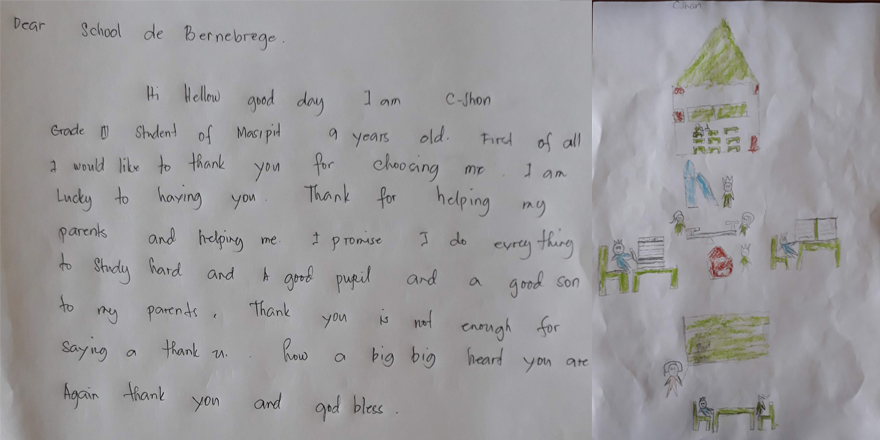 Dear School de Bernebrege.
Hi Hellow good day I am C-Jhon
Grade III Student of Masipit 9 years old. First of all
I would like to thank you for choocing me. I am
Lucky to having you. Thank for helping my
parents and helping me. I promise I do evreything
to study hard and A good pupil and a good son
to my parents. Thank you is not enough for
saying a thank u. how a big big heard you are
Again thank you and god bless.
C-Jhon